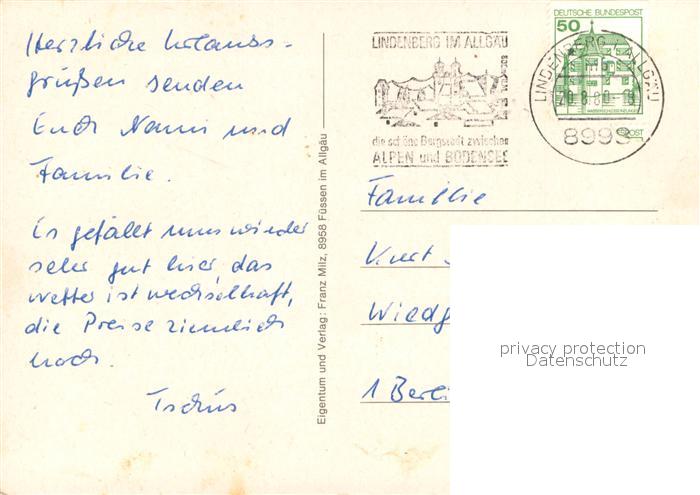 Herzliche Urlaubs-
grüßen senden
Euch Nanni und
Familie.
Es gefällt uns wieder
sehr gut hier, das
Wetter ist wechselhaft,
die Preise ziemlich
hoch.
Tschüs
Eigentum und Verlag: Franz Milz, 8958 Füssen im Allgäu
LINDENBERG IM ALLGÄU
die schöne Bergstadt zwischen
ALPEN und BODENSEE
DEUTSCHE BUNDESPOST
50
LINDENBERG / ALLGÄU
8998
Familie
Kurt
Wiedg
1 Berli
privacy protection
Datenschutz